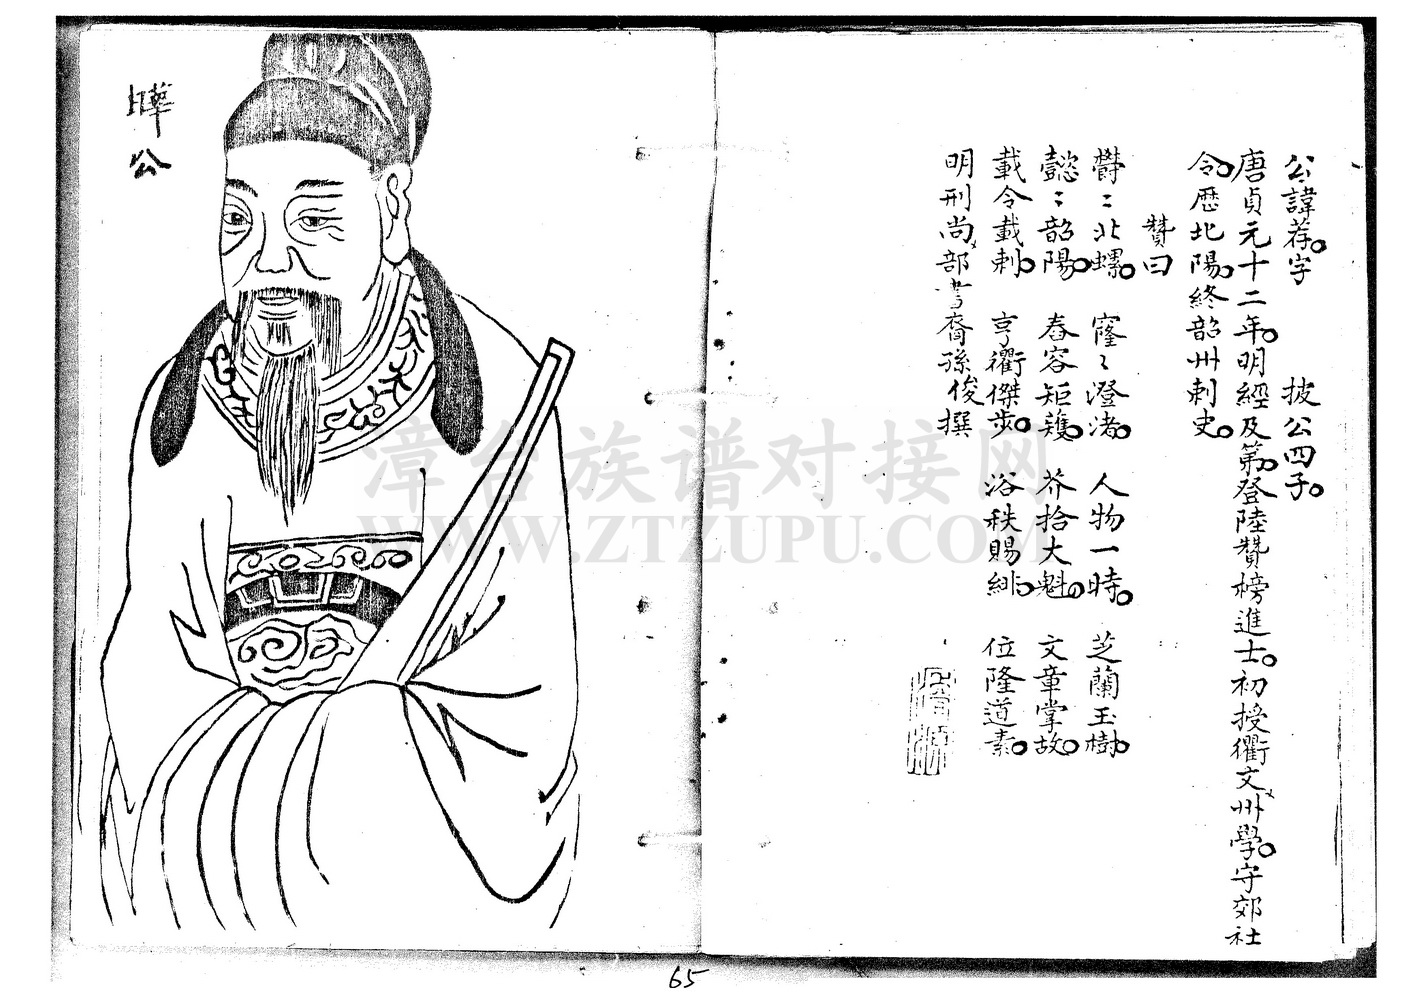 公諱荐。字　　披公四子。
唐貞元十二年。明經及第。登陸贄榜進士。初授衢文州學。守郊社
令。歷北陽。終韶州刺史。
贊曰
欝〻北螺。窿〻澄渚。人物一時。芝蘭玉樹。
懿〻韶陽。春容矩矱。芥拾大魁。文章掌故。
載令載刺。亨衢傑步。浴秩賜緋。位隆道素。
明刑尚部書裔孫俊撰
曄公
漳台族谱对接网
WWW.ZTZUPU.COM
65